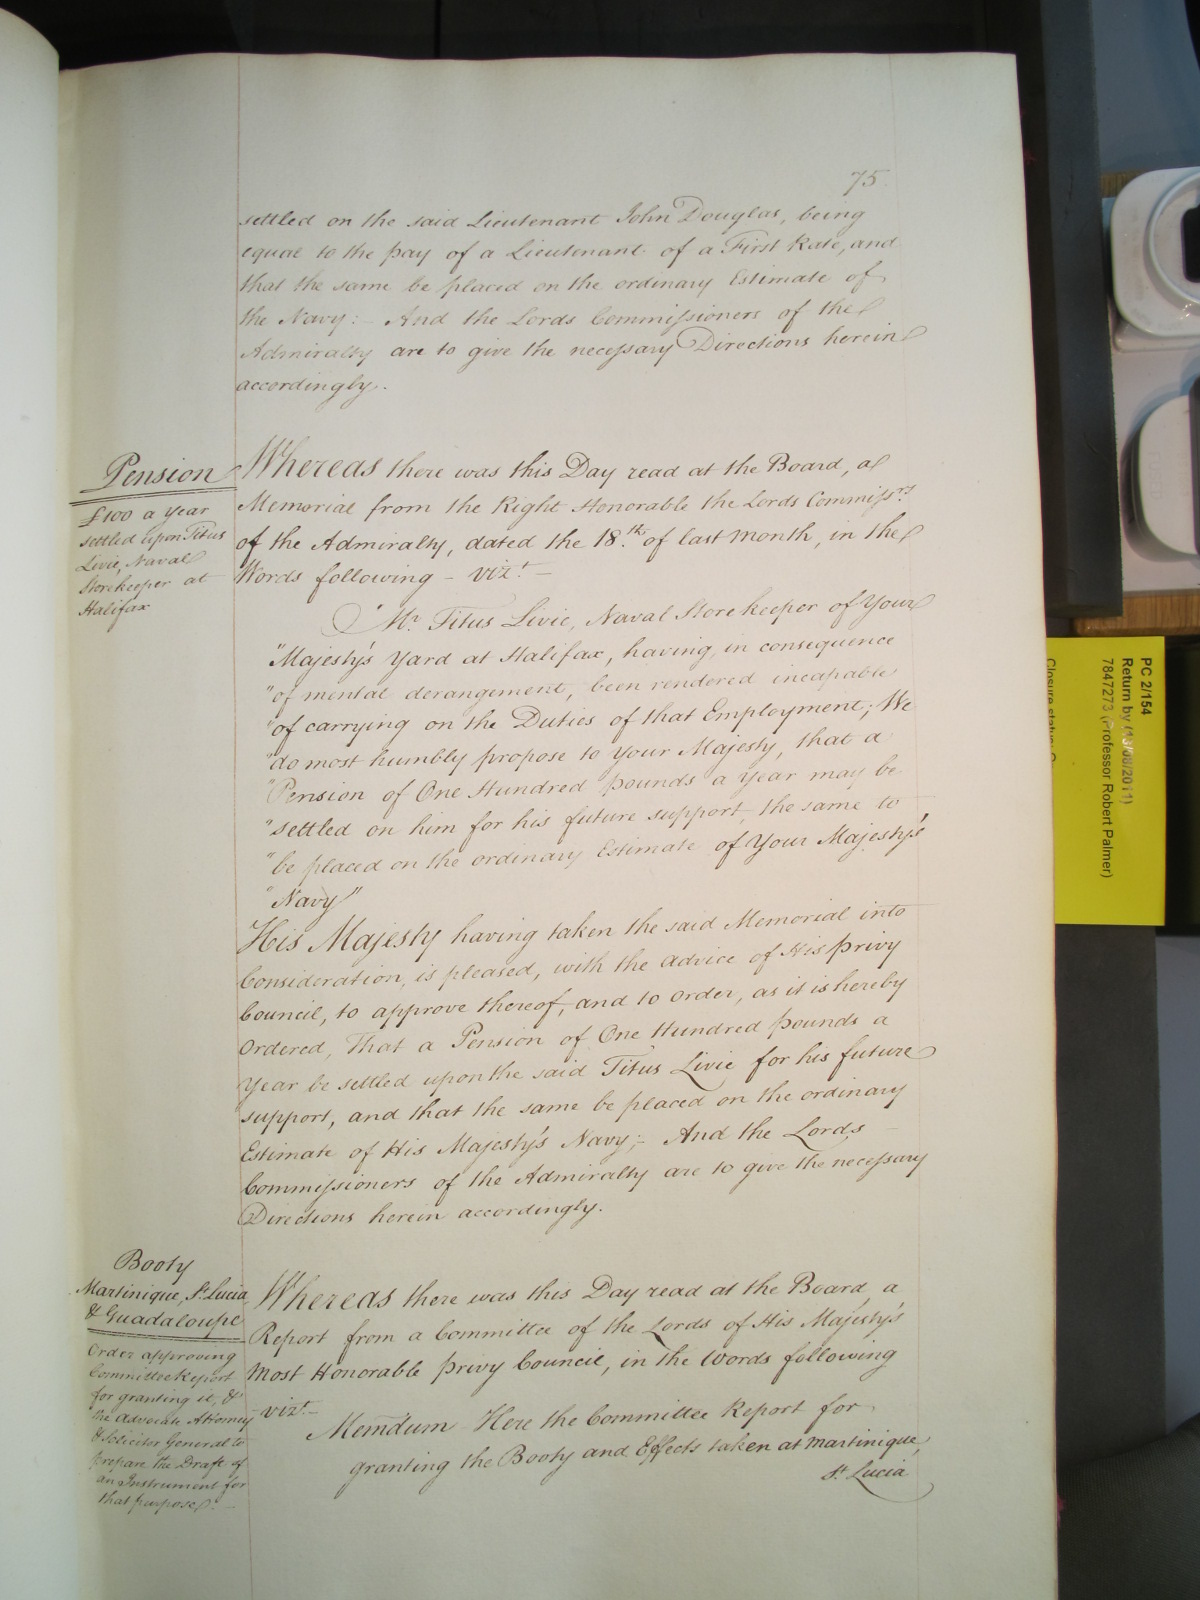 75.
settled on the said Lieutenant John Douglas, being
equal to the pay of a Lieutenant of a First Rate, and
that the same be placed on the ordinary Estimate of
the Navy:- And the Lords Commissioners of the
Admiralty are to give the necessary Directions herein
accordingly.
Pension
£100 a Year
settled upon Titus
Livie, Naval
Storekeeper at
Halifax
Whereas there was this Day read at the Board, a
Memorial from the Right Honorable the Lords Commissrs
of the Admiralty, dated the 18.th of last Month, in the
Words following - vizt. -
Mr. Titus Livie, Naval Storekeeper of Your
"Majesty's Yard at Halifax, having, in consequence
"of mental derangement, been rendered incapable
"of carrying on the Duties of that Employment; We
"do most humbly propose to Your Majesty, that a
"Pension of One Hundred pounds a Year may be
"settled on him for his future support, the same to
"be placed on the ordinary Estimate of Your Majesty's
"Navy"
His Majesty having taken the said Memorial into
Consideration, is pleased, with the advice of His Privy
Council, to approve thereof, and to order, as it is hereby
Ordered, That a Pension of One Hundred pounds a
Year be settled upon the said Titus Livie for his future
support, and that the same be placed on the ordinary
Estimate of His Majesty's Navy;- And the Lords
Commissioners of the Admiralty are to give the necessary
Directions herein accordingly.
Booty
Martinique, St. Lucia,
& Guadaloupe
Order approving
Committee Report
for granting it, &
the Advocate Attorney
& Solicitor General to
prepare the Draft of
an Instrument for
that purpose.-
Whereas there was this Day read at the Board, a
Report from a Committee of the Lords of His Majesty's
Most Honorable Privy Council, in the Words following
- vizt.-
Memdum Here the Committee Report for
granting the Booty and Effects taken at Martinique,
St. Lucia
PC 2/154
Return by (13/08/2011)
7847273 (Professor Robert Palmer)
Closure status